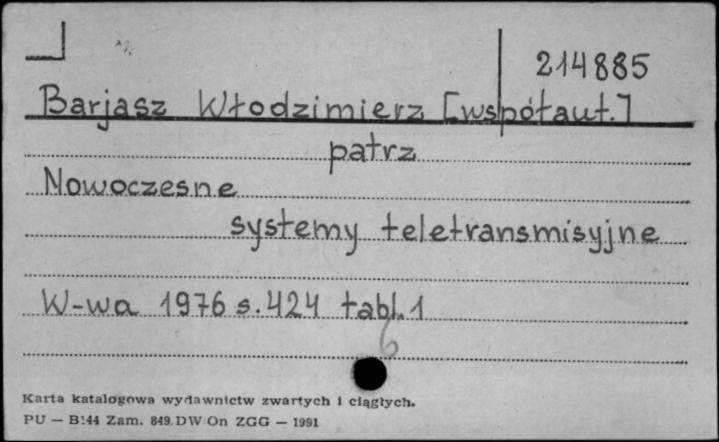 214885
Barjasz Włodzimierz [współaut.]
patrz
Nowoczesne
systemy teletransmisyjne
W-wa 1976 s. 424 tabl. 1
6
Karta katalogowa wydawnictw zwartych i ciągłych.
PU — B144 Zam. 849. DW On ZGG — 1991